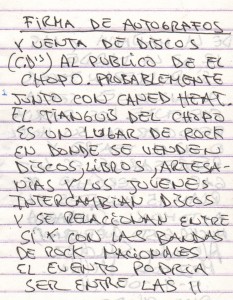 FIRMA DE AUTOGRAFOS
Y VENTA DE DISCOS
(CD'S) AL PUBLICO DE EL
CHOPO. PROBABLEMENTE
JUNTO CON CANED HEAT.
EL TIANGUIS DEL CHOPO
ES UN LUGAR DE ROCK
EN DONDE SE VENDEN
DISCOS, LIBROS, ARTESA-
NIAS Y LOS JOVENES
INTERCAMBIAN DISCOS
Y SE RELACIONAN ENTRE
SI Y CON LAS BANDAS
DE ROCK NACIONALES.
EL EVENTO PODRIA
SER ENTRE LAS 11